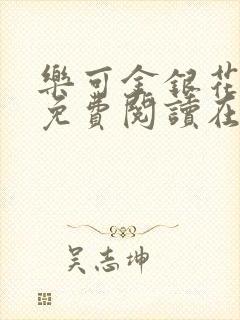 樂可金銀花
免費閱讀在
吴志坤